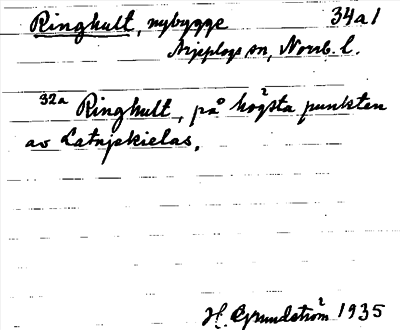 Ringhult, nybygge 34a1
Arjeplogs sn, Norrb. l.
32a Ringhult, på högsta punkten
av Latnjekielas.
H. Grundström 1935